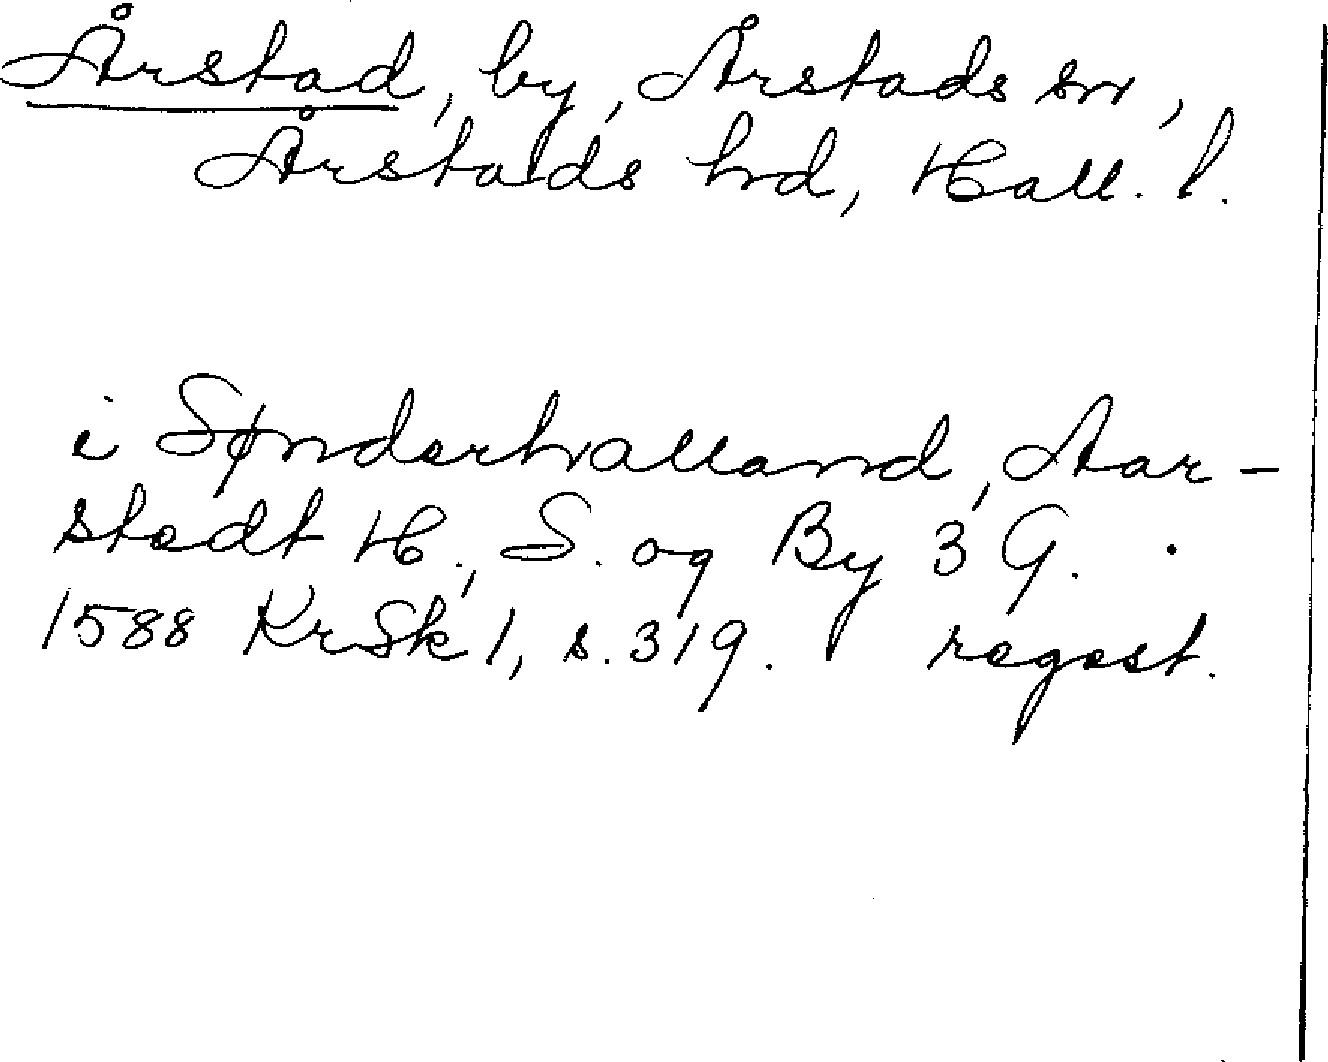 Årstad, by, Årstads sn,
Årstads hd, Hall. l.
i Sønderhalland, Aar-
stedt H., S. og By 3 G.
1588 KrSk 1, s. 319. regest.